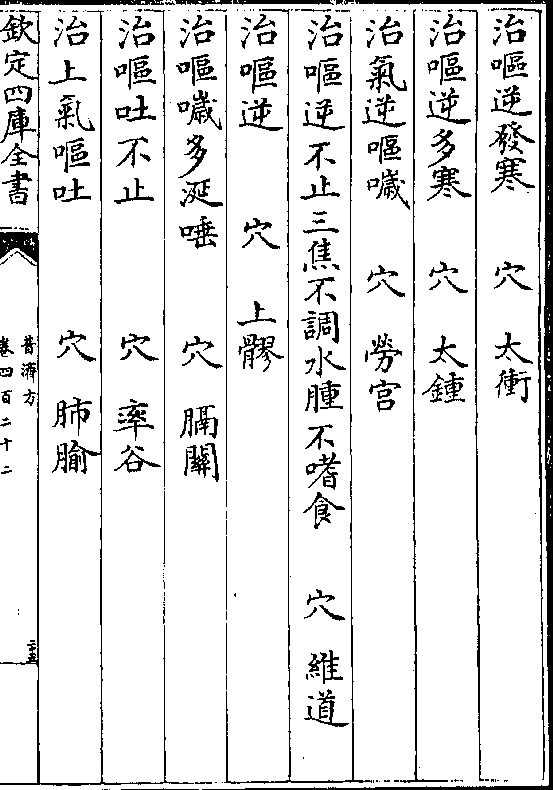 治嘔逆發寒　穴　太衝
治嘔逆多寒　穴　太鍾
治氣逆嘔噦　穴　勞宫
治嘔逆不止三焦不調水腫不嗜食　穴　維道
治嘔逆　穴　上髎
治嘔噦多涎唾　穴　膈關
治嘔吐不止　穴　率谷
治上氣嘔吐　穴　肺腧
欽定四庫全書
普濟方
卷四百二十二